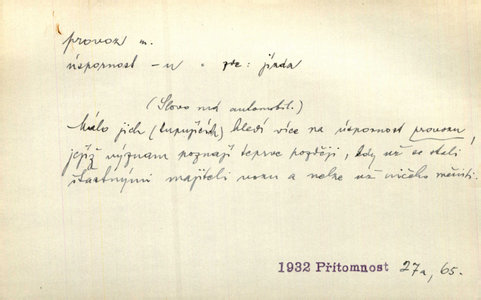 provoz m.
úspornost -u = jízda
(Slovo nad automobil.)
Málo jich (kupujících) hledí více na úspornost provozu,
jejíž význam poznají teprve později, kdy už se stali
šťastnými majiteli vozu a nelze už ničeho měniti.
1932 Přítomnost 27a, 65.